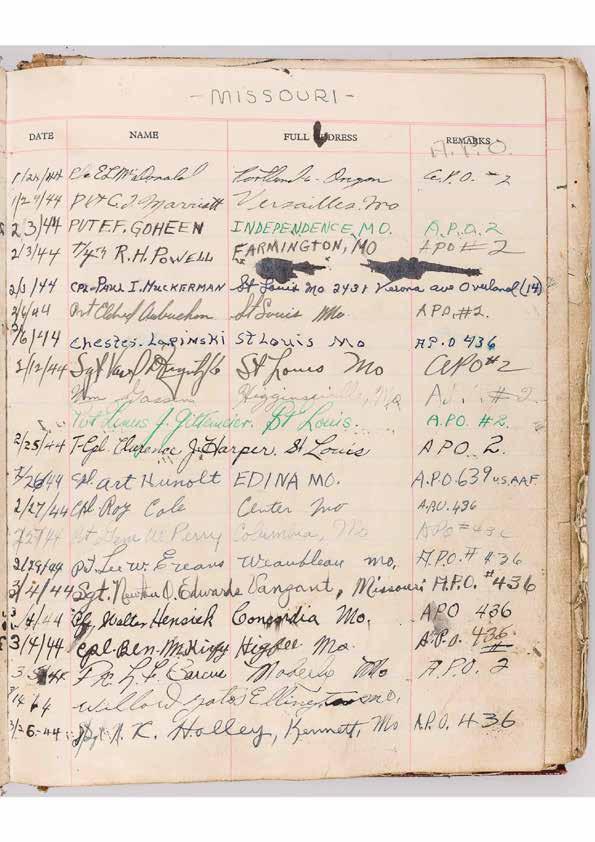 - MISSOURI -
DATE NAME FULL ADDRESS REMARKS
A.P.O.
1/24/44 E L McDonald Portland - Oregon A.P.O. #2
1/27/44 Pvt C. J. Marriott Versailles. Mo
2/3/44 PVT E.F. GOHEEN INDEPENDENCE, MO. A.P.O. 2
2/3/44 R.H. POWELL FARMINGTON, MO APO # 2
2/3/44 CPL. PAUL I. HUCKERMAN St Louis Mo 2431 Verona ave Overland (14)
2/6/44 Pvt Elbred Asbuchon St Louis Mo. APO #2.
2/6/44 Chester Lapinski St Louis Mo A.P.O 436
2/12/44 Sgt St Louis Mo APO #2
Wm Gassin Higginsville, Mo A. #2
Pvt Linus J. St Louis. A.P.O. #2.
2/25/44 T-Cpl. Clarence J. Harper St Louis APO 2.
2/26/44 Art Hunolt EDINA MO. A.P.O. 639 U.S.A.A.F.
2/27/44 Cpl Roy Cole Center Mo A.P.O. 436
2/27/44 Perry Columbia, Mo APO #436
2/29/44 Pvt Lee W. Evans Weaubleau Mo. A.P.O. # 436
3/4/44 Sgt. Newton J. Edwards Vanzant, Missouri A.P.O. #436
3/4/44 Walter Hensick Concordia Mo. APO 436
3/4/44 Cpl. Ben McKiffy Higbee Mo. A.P.O. 436
Pfc L. F. Moberly Mo A.P.O. 2
Willard Yates Ellington Mo.
3/26-44 K. Holley, Kennett, Mo A.P.O. 436